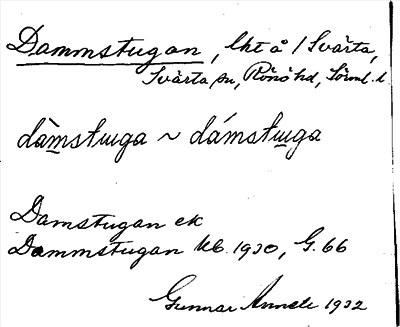 Dammstugan, lht å 1 Svärta,
Svärta sn, Rönö hd, Sörml. l.
dàmstɯga ~ dámstɯga
Damstugan ek
Dammstugan kb. 1930, G. 66
Gunnar 1932